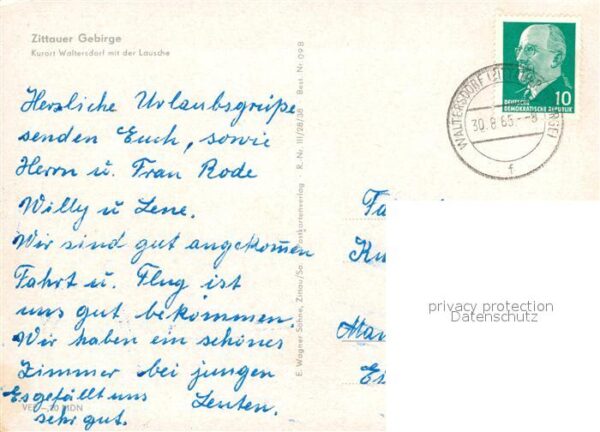 Zittauer Gebirge
Kurort Waltersdorf mit der Lausche
Herzliche Urlaubsgrüße
senden Euch, sowie
Herrn u. Frau Rode
Willy u Lene.
Wir sind gut angekommen
Fahrt u. Flug ist
uns gut bekommen.
Wir haben ein schönes
Zimmer bei jungen
Leuten.
Es gefällt uns
sehr gut.
MDN
E. Wagner Söhne, Zittau/Sa. Postkartenverlag R.-Nr. III/28/38 Best. Nr. 09B
WALTERSDORF
30.8.65.--8
f
DEUTSCHE
DEMOKRATISCHE REPUBLIK
10
privacy protection
Datenschutz